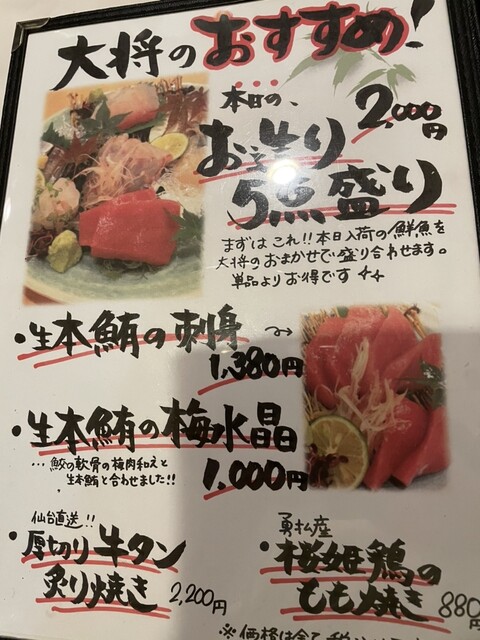 大将のおすすめ!
本日の、
お造り
5点盛り
2,000円
まずは これ!!本日入荷の鮮魚を
大将のおまかせで盛り合わせます。
単品よりお得です
・生本鮪の刺身
1,380円
・生本鮪の梅水晶
…鮫の軟骨の梅肉和えと
生本鮪と合わせました!!
1,000円
仙台直送!!
・厚切り牛タン
炙り焼き 2,200円
・桜姫鶏の
もも焼き 880円
※価格は